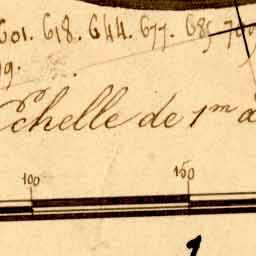 601. 618. 644. 677. 685
19.
Echelle de 1m a
100 150